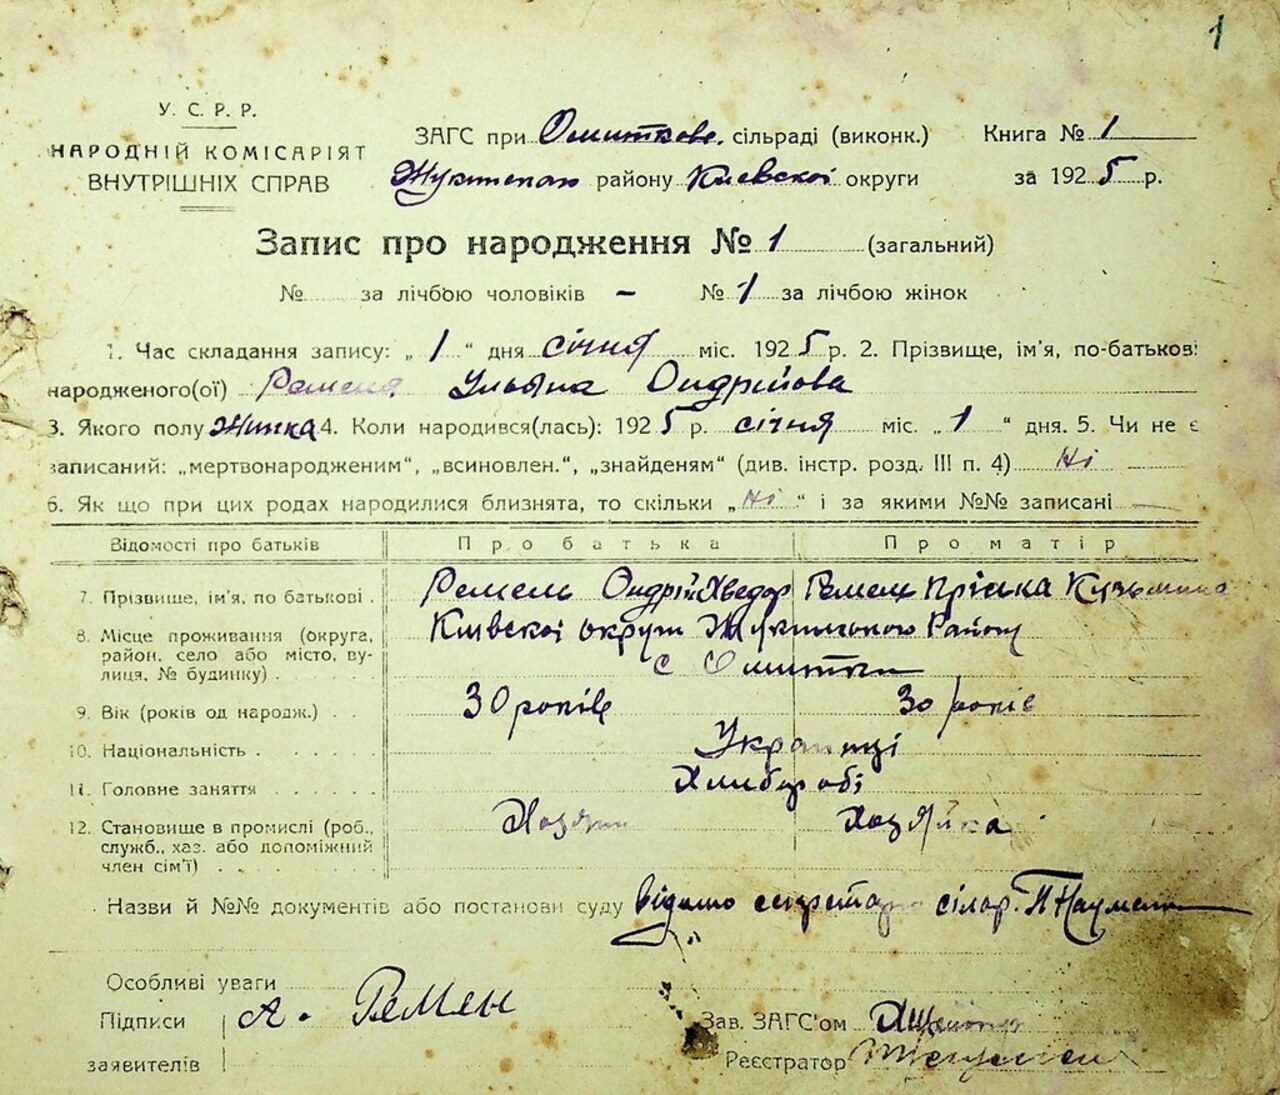 1
У. С. Р. Р.
НАРОДНІЙ КОМІСАРІЯТ
ВНУТРІШНІХ СПРАВ
ЗАГС при сільраді (виконк.) Книга № 1
району Києвскоі округи за 1925 р.
Запис про народження № 1 (загальний)
№ за лічбою чоловіків – № 1 за лічбою жінок
1. Час складання запису: „ 1 “ дня січня міс. 1925 р. 2. Прізвище, ім'я, по-батькові
народженого(ої) Ульяна Ондрійова
3. Якого полу Жинка 4. Коли народився(лась): 1925 р. січня міс. „ 1 “ дня. 5. Чи не є
записаний: „мертвонародженим“, „всиновлен.“, „знайденям“ (див. інстр. розд. III п. 4) Ні
6. Як що при цих родах народилися близнята, то скільки „Ні“ і за якими №№ записані —
Відомості про батьків Про батька Про матір
7. Прізвише, ім'я, по батькові . Ремень Ондрій Хведор Ремен Пріська Кузьмина
8. Місце проживання (округа, район, село або місто, вулиця, № будинку) . Київскоі округи Району
с
9. Вік (років од народж.) . . 30 років 30 років
10. Національність . . . . . Украінці
11. Головне заняття . . . . . Хлибороби
12. Становище в промислі (роб., служб., хаз. або допоміжний член сім'ї) . . . . Хозяин Хозяйка
Назви й №№ документів або постанови суду відомо секретарю сілар. П Науменко
Особливі уваги
Підписи заявителів А. Ремен
Зав. ЗАГС'ом
Реєстратор